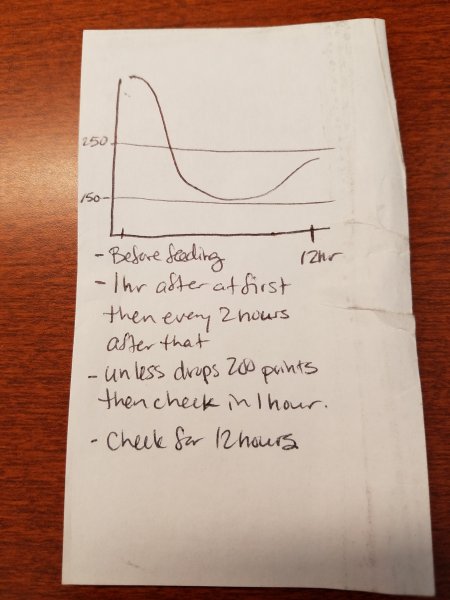 250
150
- Before feeding 12hr
- 1hr after at first
then every 2 hours
after that
- unless drops 200 points
then check in 1 hour.
- Check for 12 hours